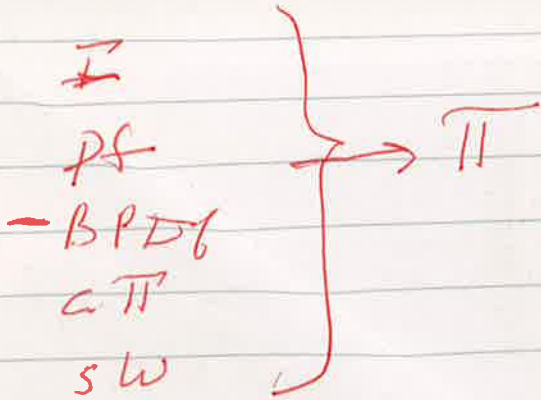 I
Pf
- B P D f
C. π
S W
→ π